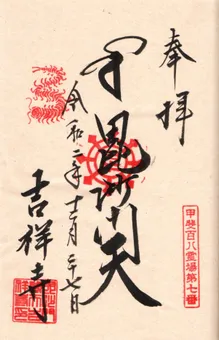 奉拝
毘沙門天
令和二年十二月二十七日
吉祥寺
甲斐百八霊場第七番